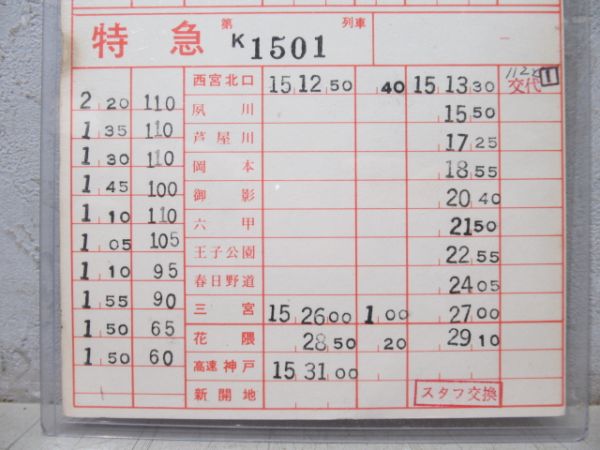 特急 第 K1501 列車
西宮北口 15 12 50 40 15 13 30 交代 1
2 20 110
夙川 15 50
1 35 110
芦屋川 17 25
1 30 110
岡本 18 55
1 45 100
御影 20 40
1 10 110
六甲 21 50
1 05 105
王子公園 22 55
1 10 95
春日野道 24 05
1 55 90
三宮 15 26 00 1 00 27 00
1 50 65
花隈 28 50 20 29 10
1 50 60
高速神戸 15 31 00
新開地 スタフ交換